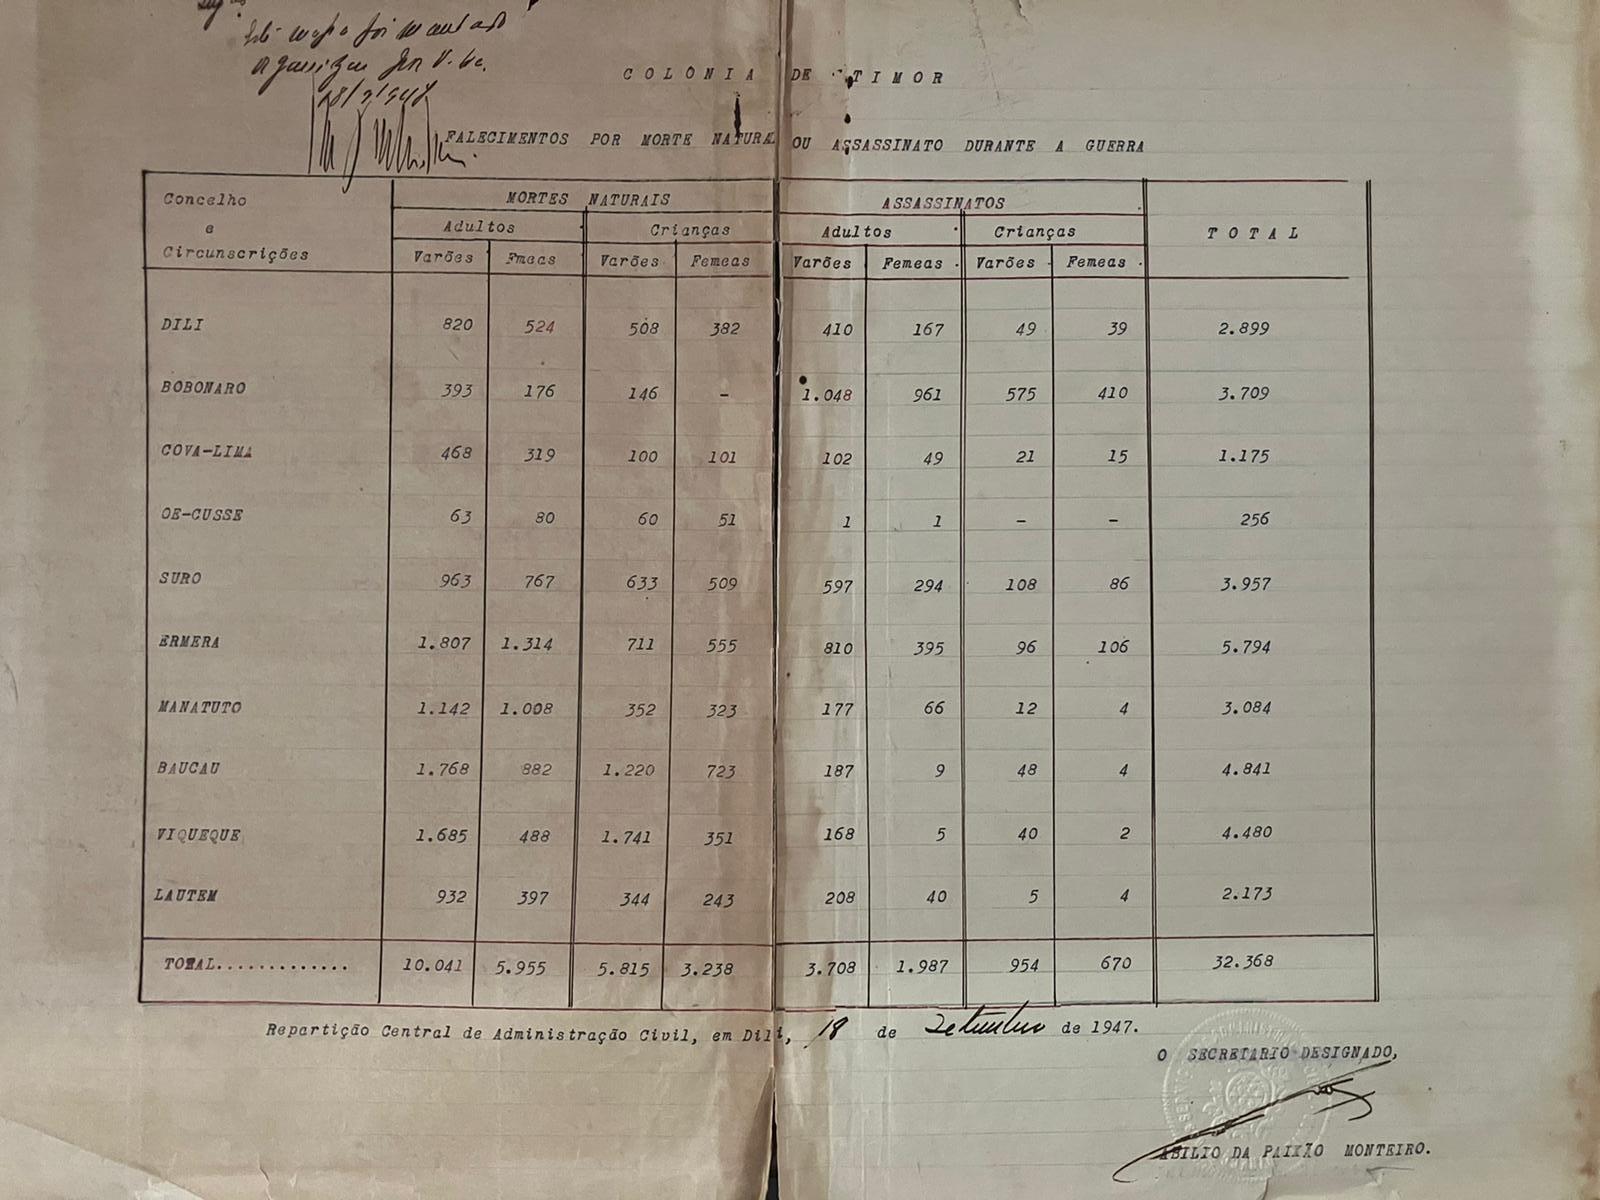 COLÓNIA DE TIMOR
FALECIMENTOS POR MORTE NATURAL OU ASSASSINATO DURANTE A GUERRA
Concelho e Circunscrições MORTES NATURAIS ASSASSINATOS TOTAL
Adultos Crianças Adultos Crianças
Varões Fmeas Varões Femeas Varões Femeas Varões Femeas
DILI 820 524 508 382 410 167 49 39 2.899
BOBONARO 393 176 146 - 1.048 961 575 410 3.709
COVA-LIMA 468 319 100 101 102 49 21 15 1.175
OE-CUSSE 63 80 60 51 1 1 - - 256
SURO 963 767 633 509 597 294 108 86 3.957
ERMERA 1.807 1.314 711 555 810 395 96 106 5.794
MANATUTO 1.142 1.008 352 323 177 66 12 4 3.084
BAUCAU 1.768 882 1.220 723 187 9 48 4 4.841
VIQUEQUE 1.685 488 1.741 351 168 5 40 2 4.480
LAUTEM 932 397 344 243 208 40 5 4 2.173
TOTAL............. 10.041 5.955 5.815 3.238 3.708 1.987 954 670 32.368
Repartição Central de Administração Civil, em Dili, 18 de Setembro de 1947.
O SECRETARIO DESIGNADO,
ABILIO DA PAIXÃO MONTEIRO.